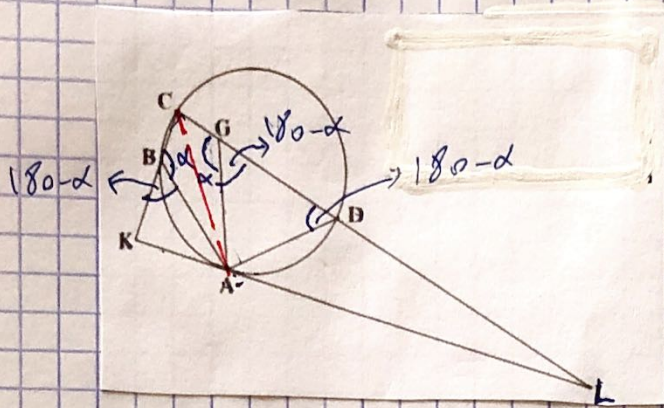 C
G
180-α
B
α
180-α
α
180-α
D
K
A
L